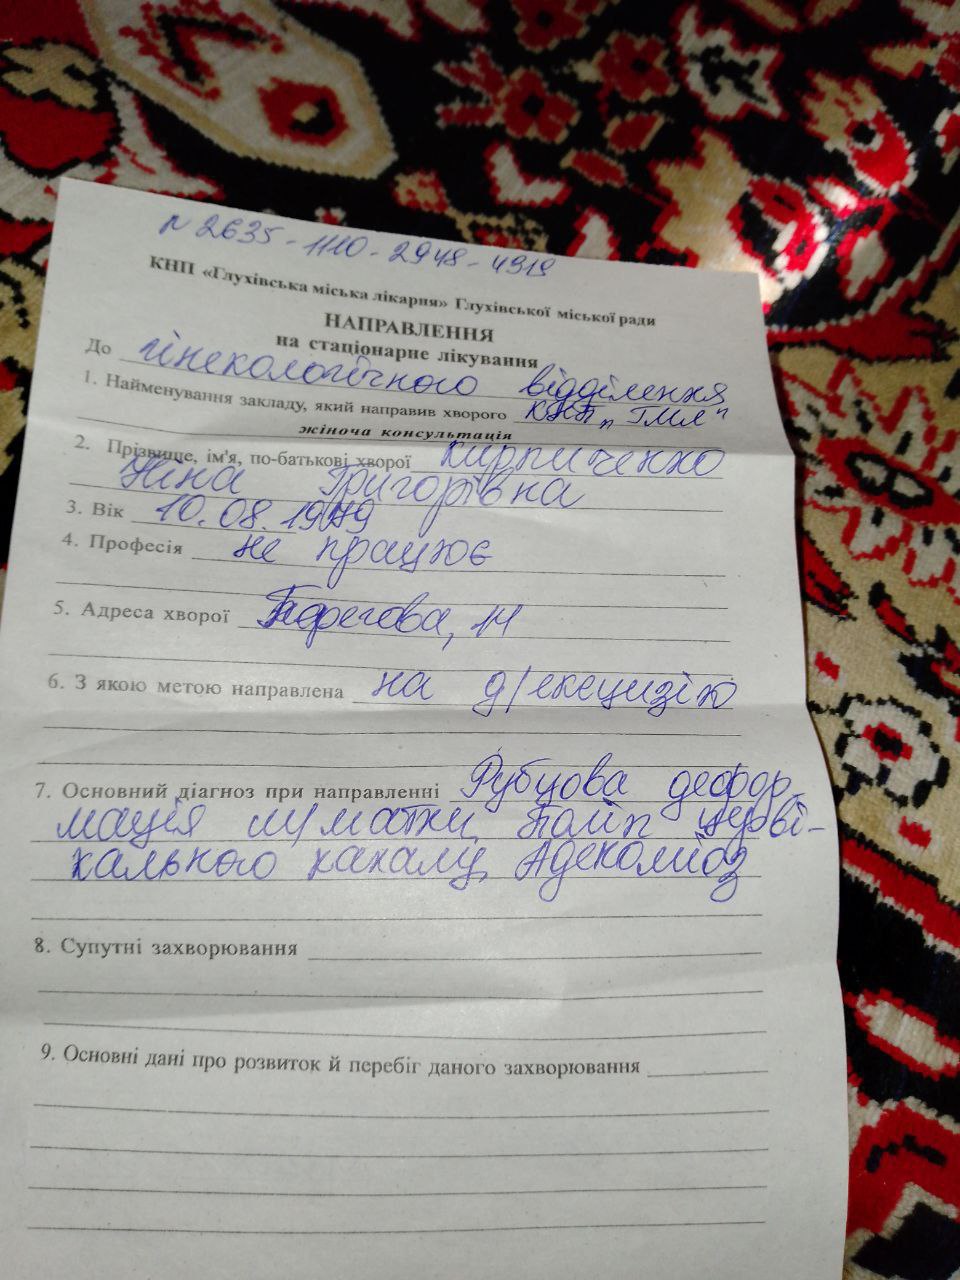 № 2635-1110-2948-4919
КНП «Глухівська міська лікарня» Глухівської міської ради
НАПРАВЛЕННЯ
на стаціонарне лікування
До гінекологічного відділення
1. Найменування закладу, який направив хворого КНП „ГМЛ"
жіноча консультація
2. Прізвище, ім'я, по-батькові хворої Кирпиченко
Ніна Григорівна
3. Вік 10.08.1979
4. Професія не працює
5. Адреса хворої Берегова, 14
6. З якою метою направлена на д/ексцизію
7. Основний діагноз при направленні Рубцова дефор-
мація ш/матки, Поліп церві-
кального каналу, Аденоміоз
8. Супутні захворювання
9. Основні дані про розвиток й перебіг даного захворювання